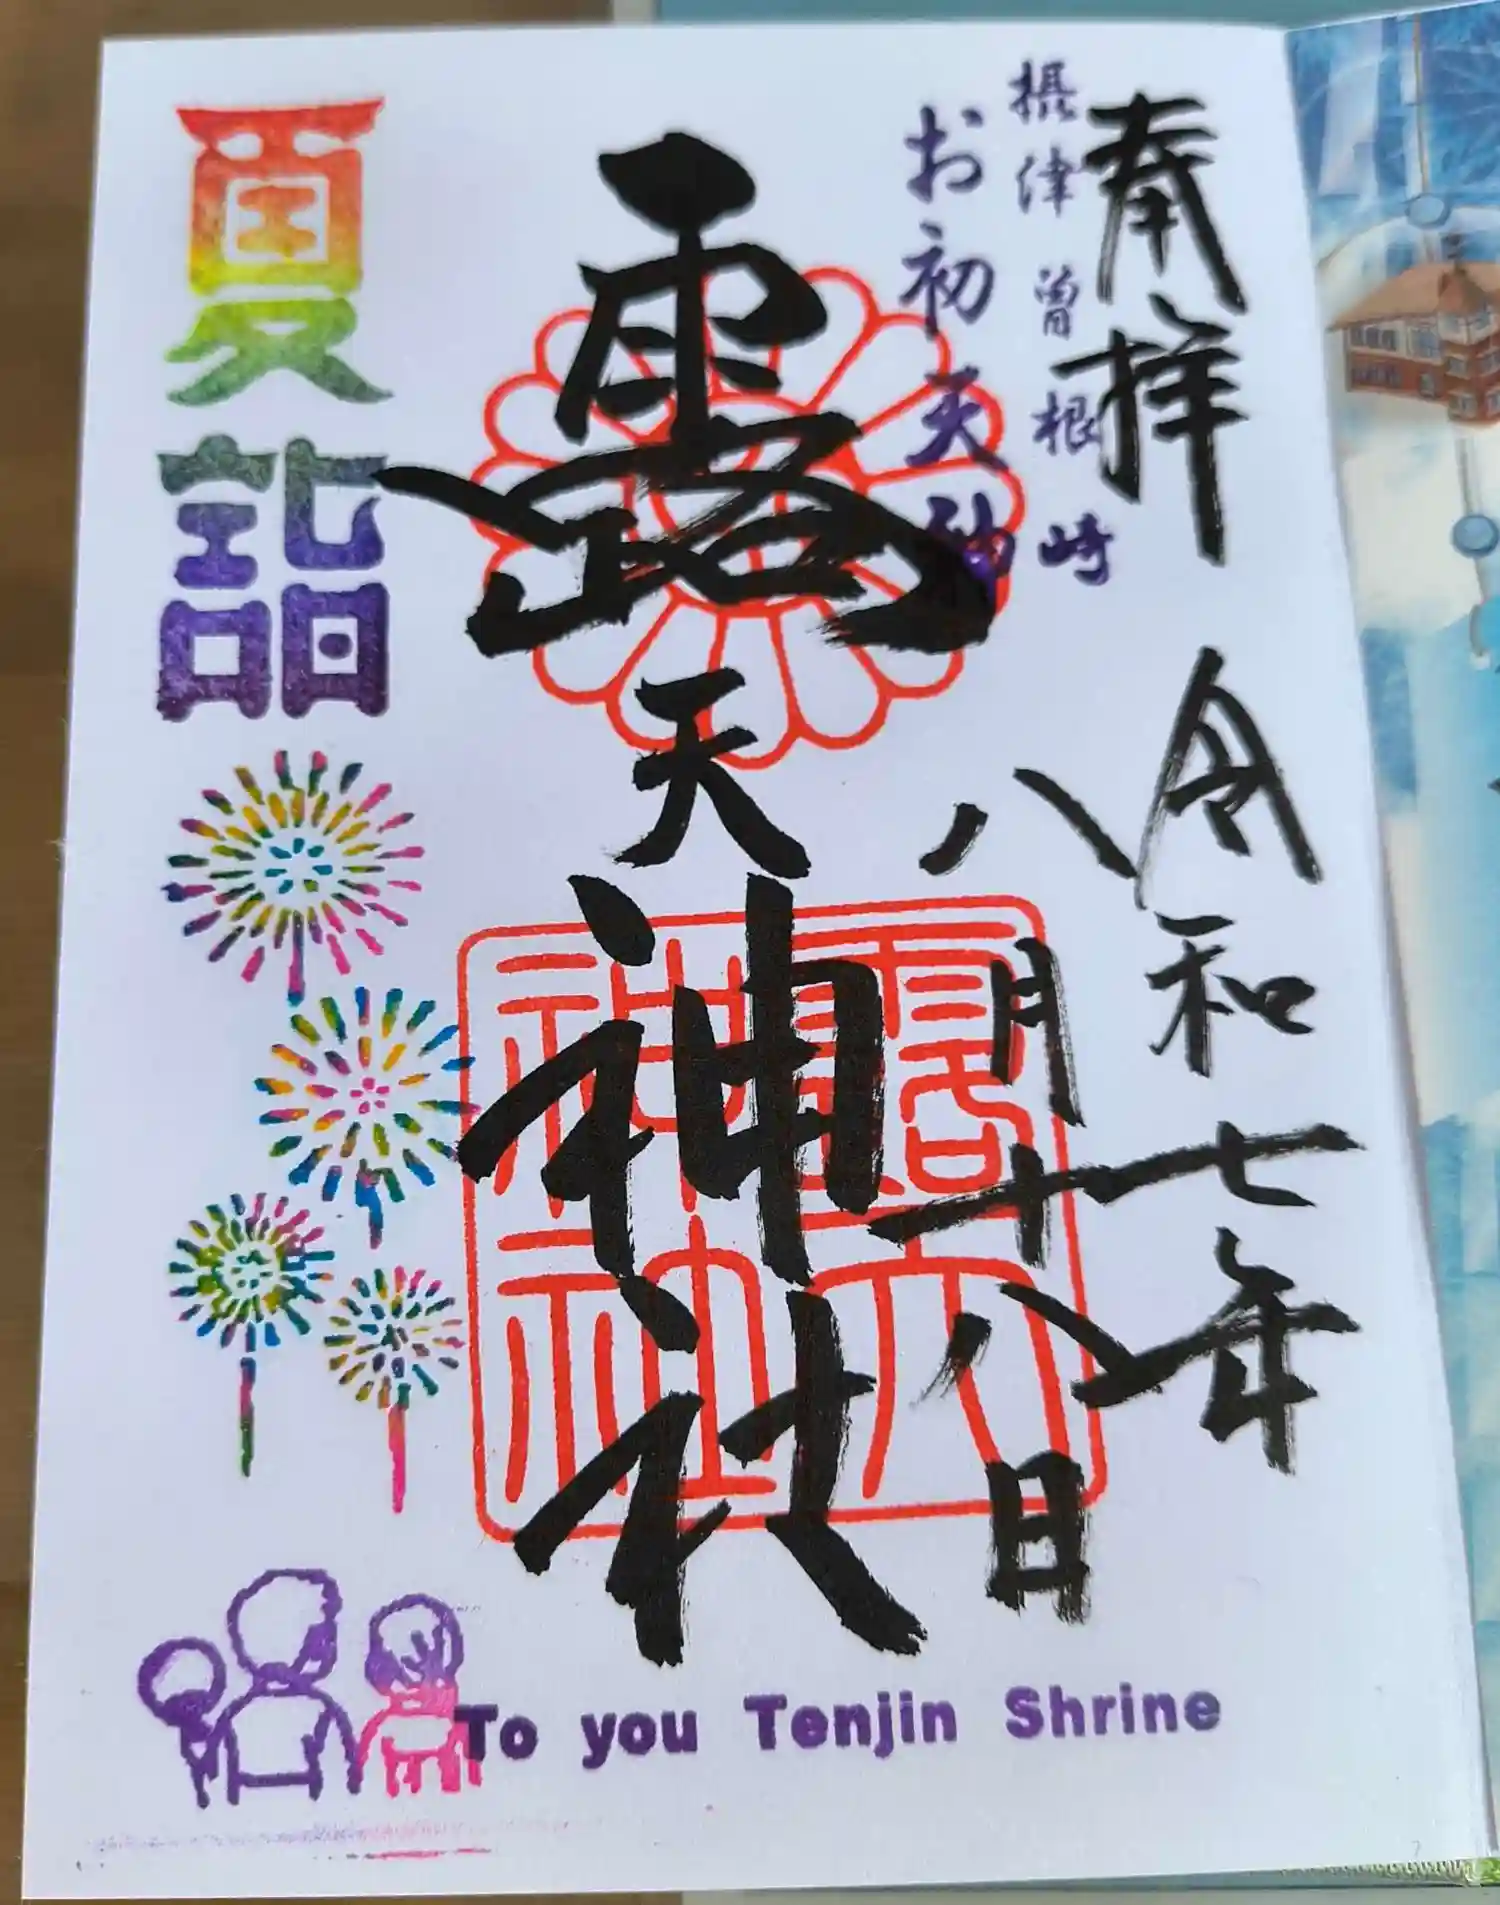 奉拝
令和七年
八月十八日
摂津 曽根崎
お初天神
露天神社
露天神社
夏詣
To you Tenjin Shrine